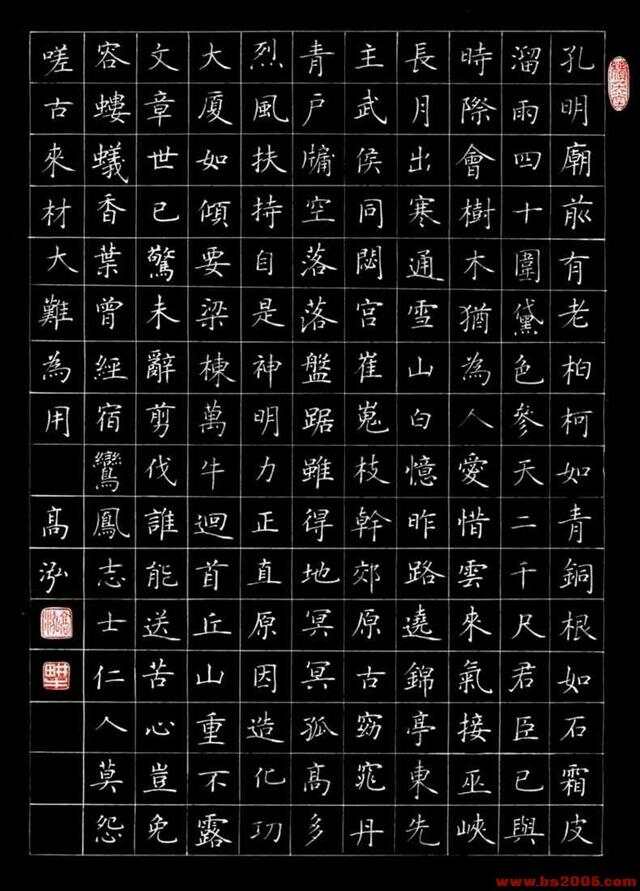 孔明廟前有老柏柯如青銅根如石霜皮
溜雨四十圍黛色參天二千尺君臣已與
時際會樹木猶為人愛惜雲來氣接巫峽
長月出寒通雪山白憶昨路遶錦亭東先
主武侯同閟宮崔嵬枝幹郊原古窈窕丹
青戶牖空落落盤踞雖得地冥冥孤高多
烈風扶持自是神明力正直原因造化功
大廈如傾要梁棟萬牛迴首丘山重不露
文章世已驚未辭剪伐誰能送苦心豈免
容螻蟻香葉曾經宿鸞鳳志士仁人莫怨
嗟古來材大難為用 高泓
www.bs2005.com